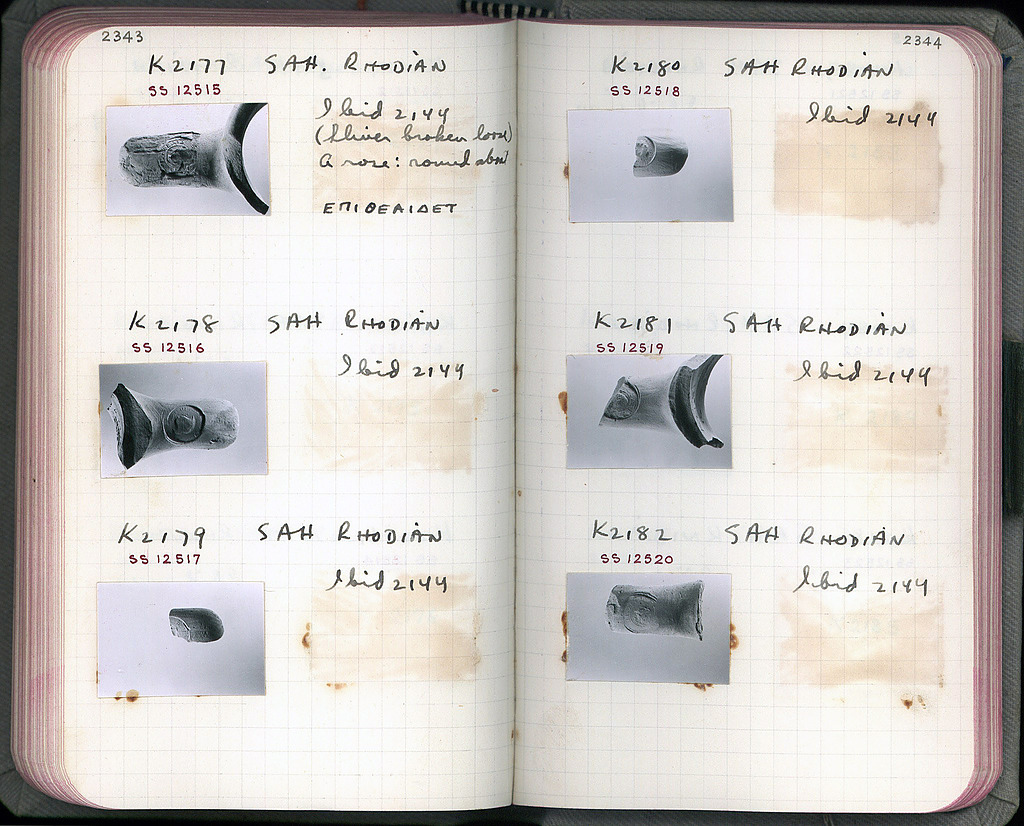 2343
K2177 SAH. RHODIAN
SS 12515
Ibid 2144
(Sliver broken loose)
A rose: round about
ΕΠΙΘΕΑΙΔΕΤ
K2178 SAH RHODIAN
SS 12516
Ibid 2144
K2179 SAH RHODIAN
SS 12517
Ibid 2144
2344
K2180 SAH RHODIAN
SS 12518
Ibid 2144
K2181 SAH RHODIAN
SS 12519
Ibid 2144
K2182 SAH RHODIAN
SS 12520
Ibid 2144